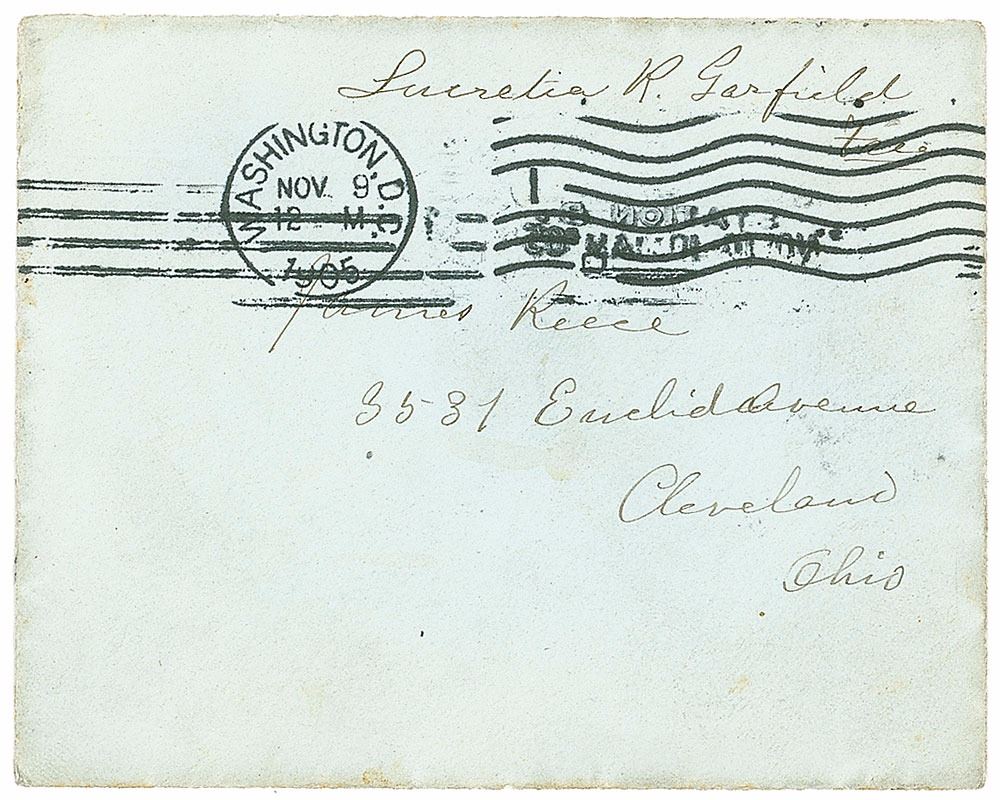 Lucretia R. Garfield
Free
WASHINGTON, D.C.
NOV. 9
12 M.
1905
1
James Reece
3531 Euclid Avenue
Cleveland
Ohio